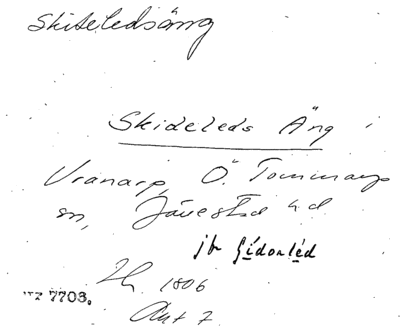 Skiteledsäng
Skideleds Äng
Vranarp, Ö. Tommarps
sn, Järrestad hd
jfr
1806
Akt 7
7703.